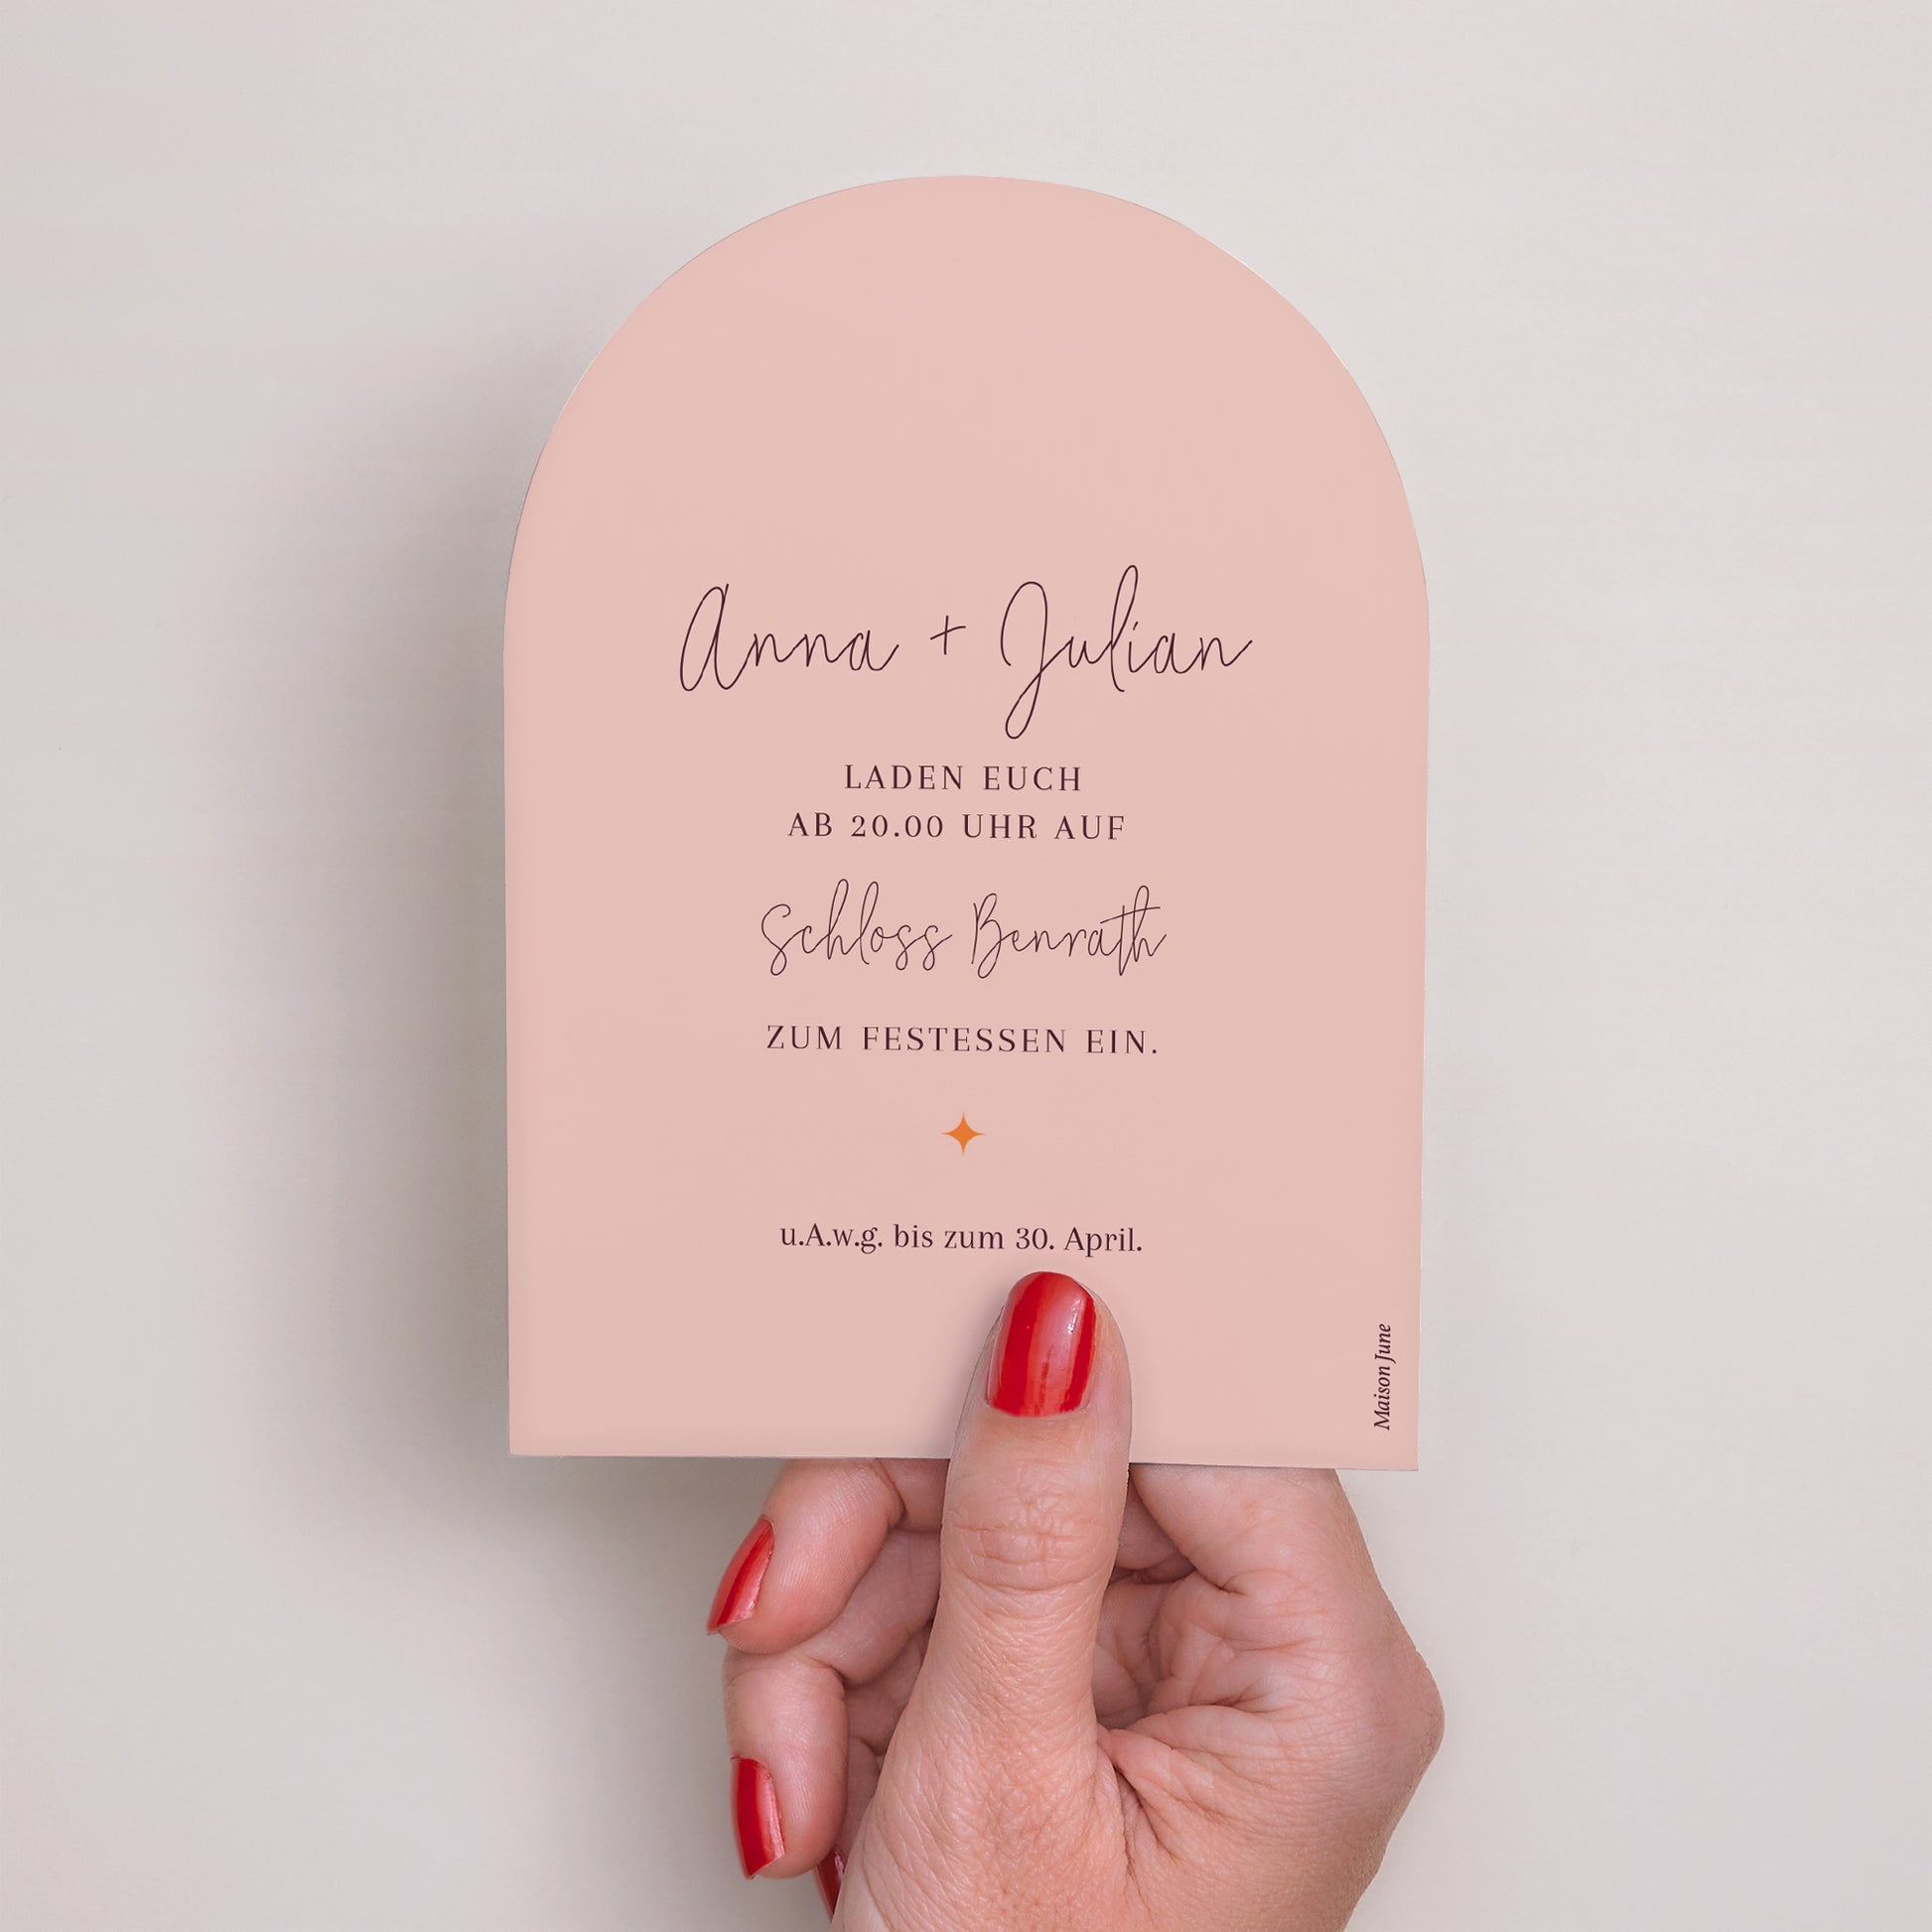 Anna + Julian
LADEN EUCH
AB 20.00 UHR AUF
Schloss Benrath
ZUM FESTESSEN EIN.
u.A.w.g. bis zum 30. April.
Maison June